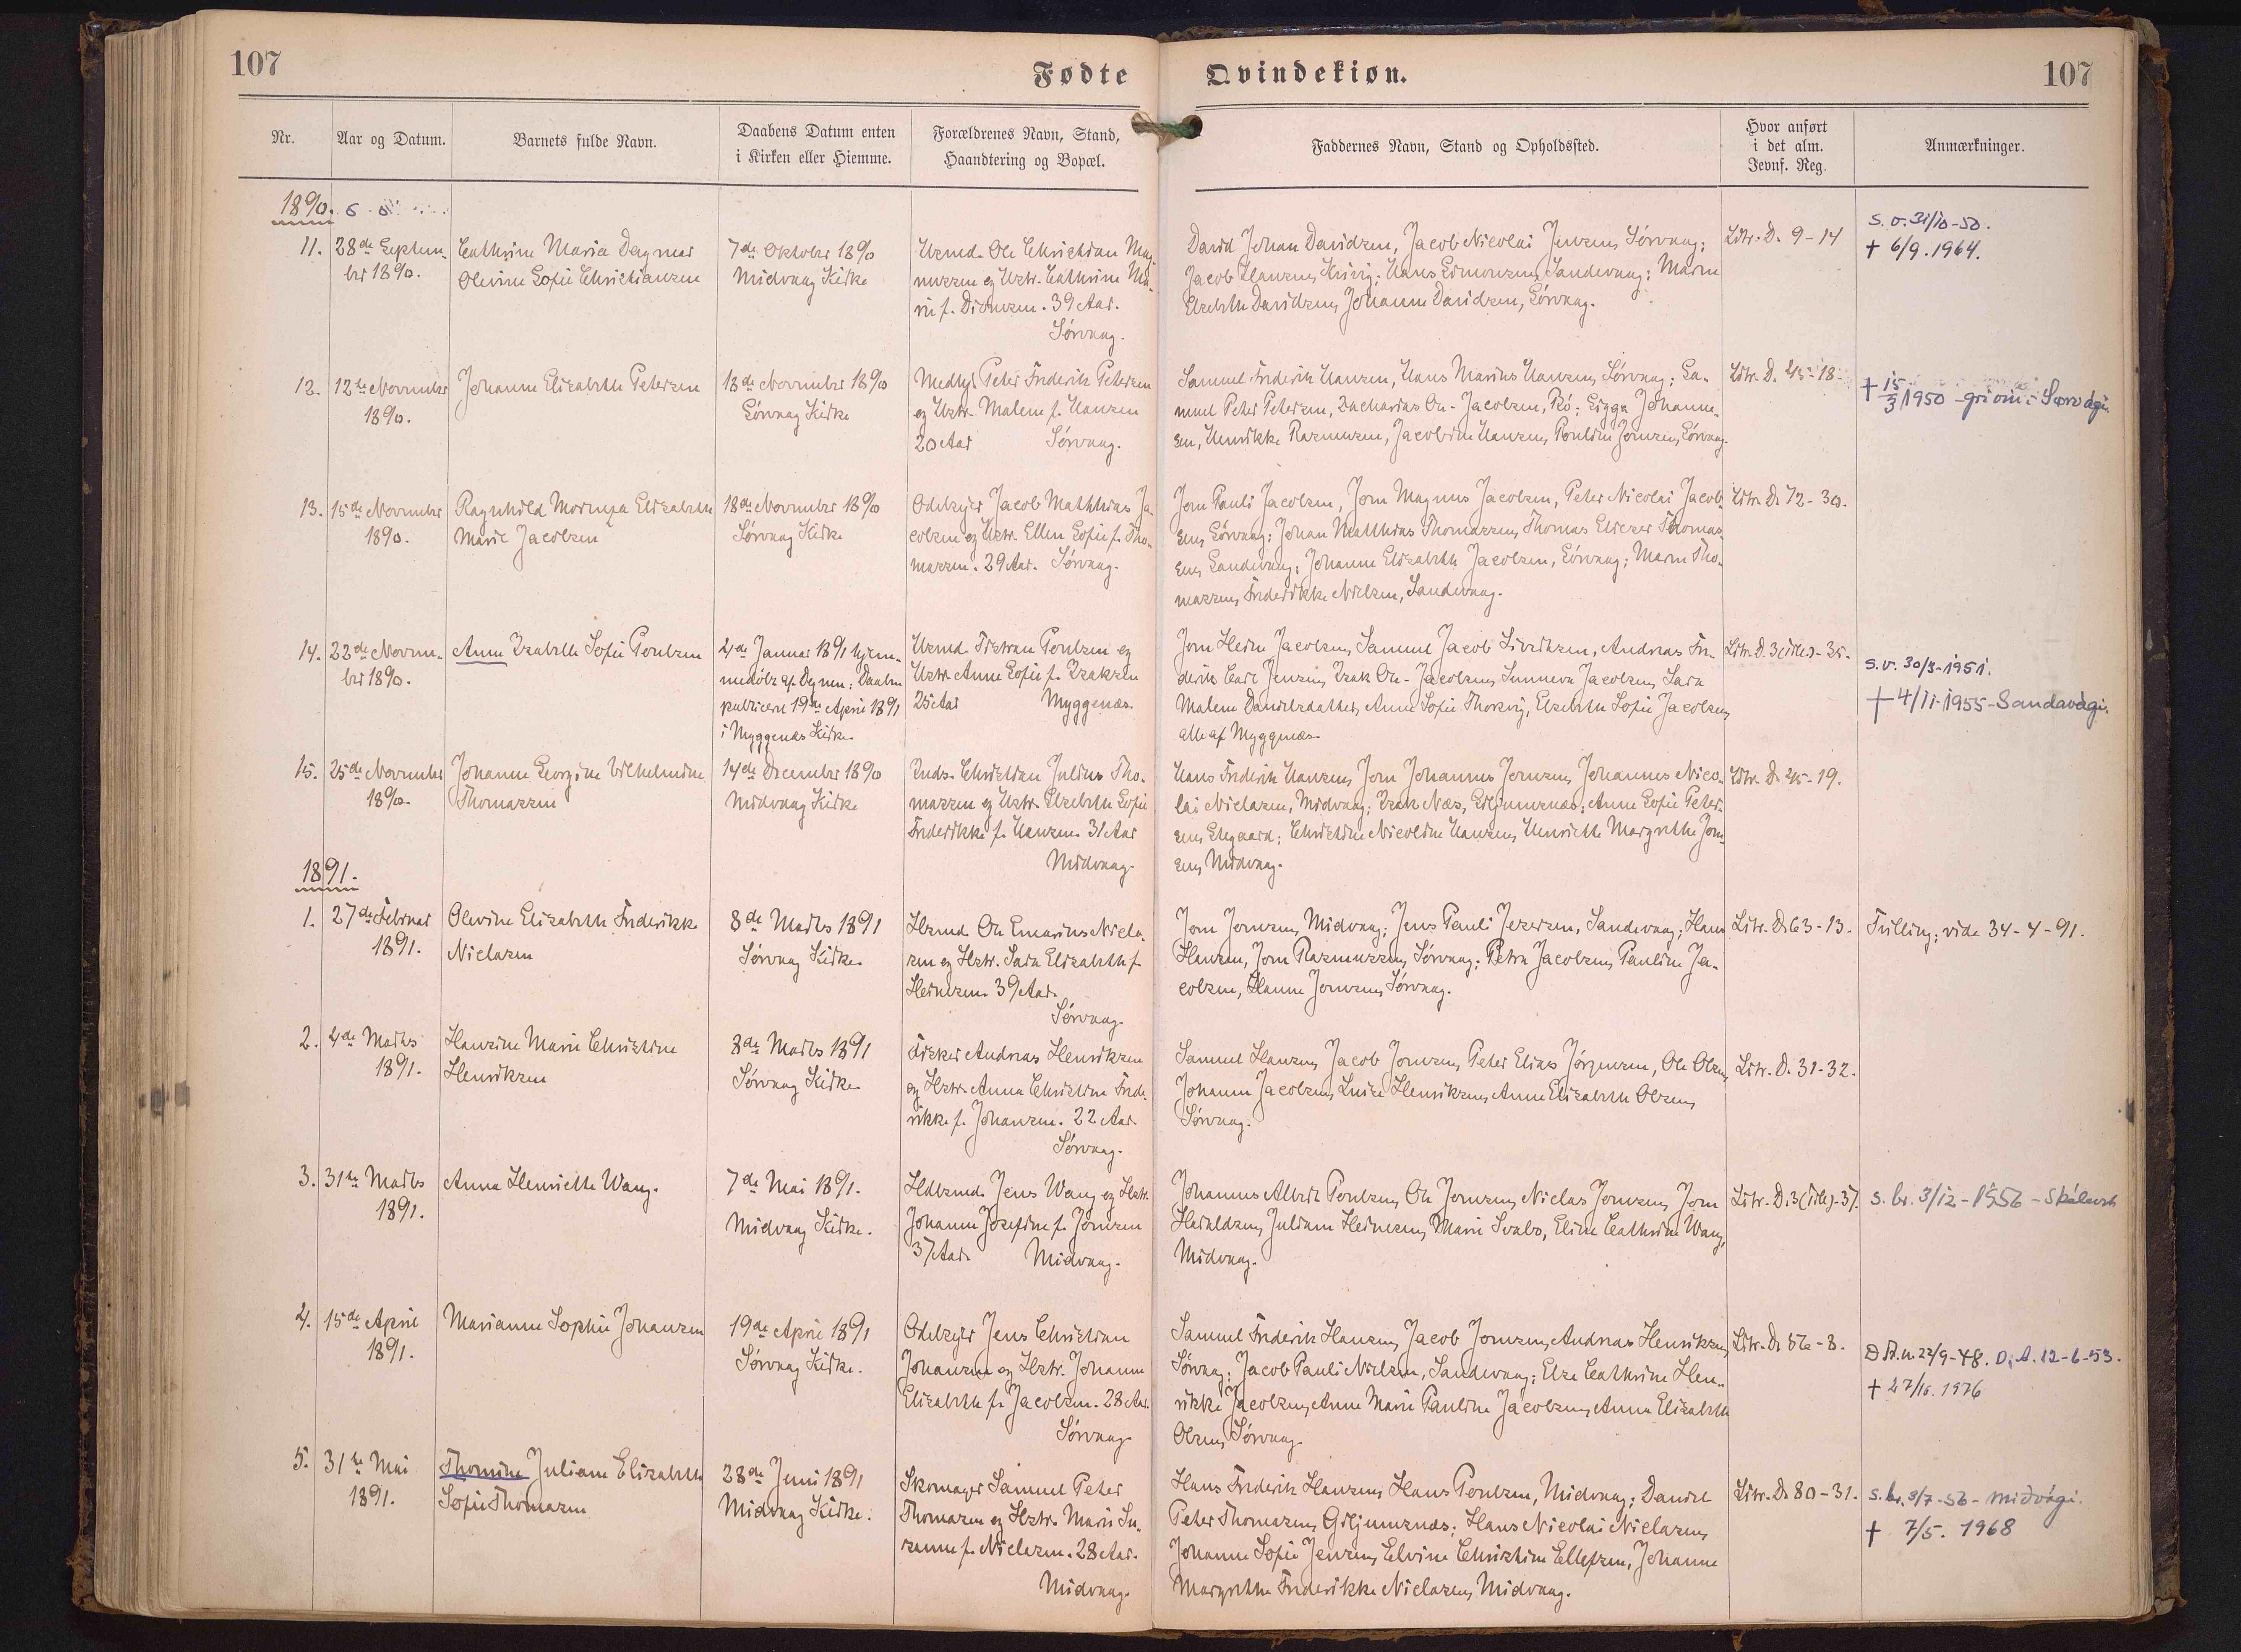 107
Fødte
Qvindekiøn.
107
Nr.
Aar og Datum.
Barnets fulde Navn.
Daabens Datum enten
i Kirken eller Hiemme.
Forældrenes Navn, Stand,
Haandtering og Bopæl.
Faddernes Navn, Stand og Opholdssted.
Hvor anført
i det alm.
Jevnf. Reg.
Anmærkninger.
1890.
11.
28de Septem-
ber 1890.
Cathrine Maria Dagmar
Olevine Sofie Christiansen
7de Oktober 1890
Midvaag Kirke
Hsmd. Ole Christian Mag-
nussen og Hstr. Cathrine Ma-
rie f. Simonsen. 39 Aar.
Sörvaag.
David Johan Davidsen, Jacob Nicolai Jensen, Sörvaag;
Jacob Hansen, Hans Simonsen, Sandevaag; Maren
Elsebeth Davidsen, Johanne Davidsen, Sörvaag.
Litr. D. 9-14
s.v. 31/10-50.
† 6/9. 1964.
12.
12te November
1890.
Johanne Elisabeth Petersen
18de November 1890
Sörvaag Kirke
Peter Frederik Petersen
og Hstr. Malene f. Hansen
20 Aar
Sörvaag.
Samuel Frederik Hansen, Hans Marius Hansen, Sörvaag; Sa-
muel Peter Petersen, Zacharias Ole Jacobsen, Bö; Sigga Johanne-
sen, Henrikke Rasmussen, Jacobine Hansen, Pouline Joensen, Sörvaag.
Litr. D. 45-18
† 15/3 1950 - griðin í Sørvági.
13.
15de November
1890.
Ragnhild Morenza Elisabeth
Marie Jacobsen
18de November 1890
Sörvaag Kirke
Odelsejer Jacob Matthias Ja-
cobsen og Hstr. Ellen Sofie f. Tho-
massen. 29 Aar. Sörvaag.
Joen Pauli Jacobsen, Joen Magnus Jacobsen, Peter Nicolai Jacob-
sen, Sörvaag; Johan Matthias Thomassen, Thomas Eliezer Thomas-
sen, Sandevaag; Johanne Elisabeth Jacobsen, Sörvaag; Maren Tho-
massen, Frederikke Nielsen, Sandevaag.
Litr. D. 72-30.
14.
22de Novem-
ber 1890.
Anne Isabelle Sofie Poulsen
4de Januar 1891 hjem-
medöbt af Degnen; Daaben
publiceret 19de April 1891
i Myggenæs Kirke.
Hsmd. Tistran Poulsen og
Hstr. Anne Sofie f. Isaksen
25 Aar
Myggenæs.
Joen Heine Jacobsen, Samuel Jacob Sivertsen, Andreas Fre-
derik Carl Jensen, Isak Ole Jacobsen, Sunneva Jacobsen, Sara
Malene Danielsdatter, Anne Sofie Thorsvig, Elsebeth Sofie Jacobsen,
alle af Myggenæs.
Litr. D. 3(idte)-35.
s.v. 30/3-1951.
† 4/11-1955-Sandavági.
15.
25de November
1890.
Johanne Georgine Vilhelmine
Thomassen
14de December 1890
Midvaag Kirke
Inds. Christian Julius Tho-
massen og Hstr. Elsebeth Sofie
Frederikke f. Hansen. 31 Aar
Midvaag.
Hans Frederik Hansen, Joen Johannes Joensen, Johannes Nico-
lai Niclasen, Midvaag; Isak Næs, Giljumsnæs; Anne Sofie Peter-
sen, Stegaard; Christine Nicoline Hansen, Henriette Margrethe Joen-
sen, Midvaag.
Litr. D. 45-19.
1891.
1.
27de Februar
1891.
Olevine Elisabeth Frederikke
Niclasen
8de Marts 1891
Sörvaag Kirke.
Hsmd. Ole Emarius Nicla-
sen og Hstr. Sara Elisabeth f.
Heinesen. 39 Aar.
Sörvaag.
Joen Joensen, Midvaag; Jens Pauli Jesersen, Sandevaag; Hans
Hansen, Joen Rasmussen, Sörvaag; Petra Jacobsen, Pauline Ja-
cobsen, Hanne Joensen, Sörvaag.
Litr. D. 63-13.
Tvilling; vide 34-4-91.
2.
4de Marts
1891.
Hansine Marie Christine
Henriksen
8de Marts 1891
Sörvaag Kirke.
Fisker Andreas Henriksen
og Hstr. Anna Christine Frede-
rikke f. Johansen. 22 Aar.
Sörvaag.
Samuel Hansen, Jacob Joensen, Peter Elias Jörgensen, Ole Olsen,
Johanne Jacobsen, Luise Henriksen, Anne Elisabeth Olsen,
Sörvaag.
Litr. D. 31-32.
3.
31te Marts
1891.
Anna Henriette Wang.
7de Mai 1891.
Midvaag Kirke.
Jens Wang og Hstr.
Johanne Josefine f. Joensen
37 Aar.
Midvaag.
Johannes Albert Poulsen, Ole Joensen, Niclas Joensen, Joen
Haraldsen, Juliane Heinesen, Marie Svabo, Eline Cathrine Wang,
Midvaag.
Litr. D. 3(idte)-37.
s.br. 3/12-1956
4.
15de April
1891.
Marianne Sophie Johansen
19de April 1891
Sörvaag Kirke.
Odelsejer Jens Christian
Johansen og Hstr. Johanne
Elisabeth f. Jacobsen. 28 Aar.
Sörvaag.
Samuel Frederik Hansen, Jacob Joensen, Andreas Henriksen,
Sörvaag; Jacob Pauli Nielsen, Sandevaag; Else Cathrine Hen-
rikke Jacobsen, Anne Marie Pauline Jacobsen, Anna Elisabeth
Olsen, Sörvaag.
Litr. D. 56-8.
D.A.u. 22/9-48. D.A. 12-6-53.
† 27/10. 1976
5.
31te Mai
1891.
Thomine Juliane Elisabeth
Sofie Thomasen
28de Juni 1891
Midvaag Kirke.
Skomager Samuel Peter
Thomasen og Hstr. Marie Su-
sanne f. Niclasen. 28 Aar.
Midvaag.
Hans Frederik Hansen, Hans Poulsen, Midvaag; Daniel
Peter Thomasen, Giljumsnæs; Hans Nicolai Niclasen,
Johanne Sofie Jensen, Elvine Christine Ellefsen, Johanne
Margrethe Frederikke Niclasen, Midvaag.
Litr. D. 80-31.
s.br. 9/7-56 - miðvági.
† 7/5. 1968